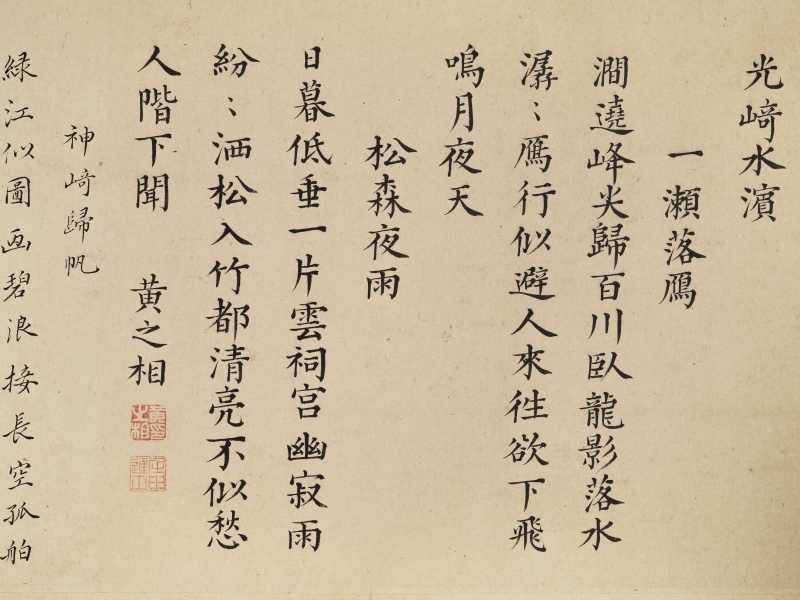 光﨑水濱
一瀬落鴈
澗遶峰尖歸百川臥龍影落水
潺〻鴈行似避人來往欲下飛
鳴月夜天
松森夜雨
日暮低垂一片雲祠宮幽寂雨
紛〻洒松入竹都清亮不似愁
人階下聞 黄之相
神﨑歸帆
緑江似圖画碧浪接長空孤舶